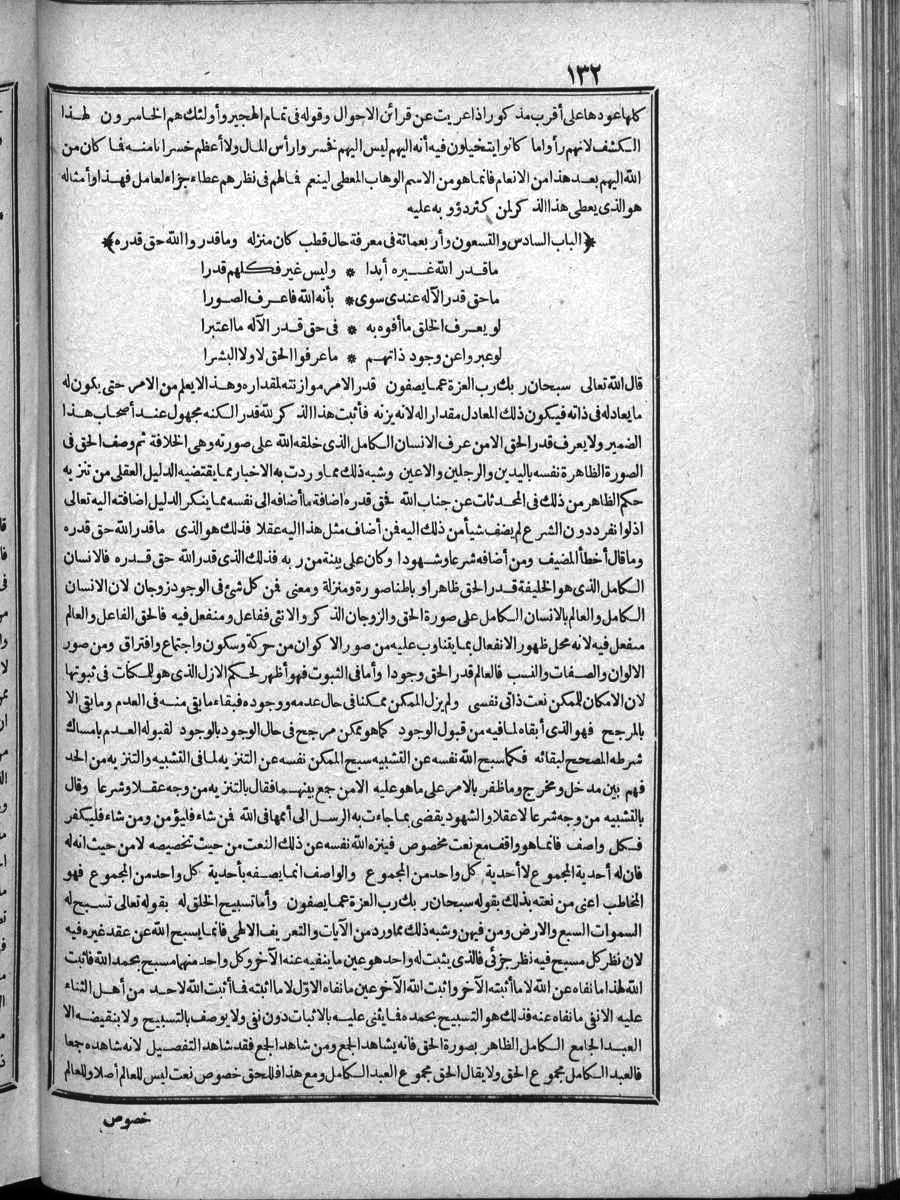 ١٣٢
كلها عودها على أقرب مذكور اذا عريت عن قرائن الاحوال وقوله فى تمام الهجير وأولئك هم الخاسرون لهذا
الكشف لانهم رأوا ما كانوا يتخيلون فيه أنه اليهم ليس اليهم فخسروا رأس المال ولا أعظم خسرانا منه فما كان من
الله اليهم بعد هذا من الانعام فانما هو من الاسم الوهاب المعطى لينعم فما لهم فى نظرهم عطاء جزاء لعامل فهذا وأمثاله
هو الذى يعطى هذا الذكر لمن كثر دؤوبه عليه
﴿الباب السادس والتسعون وأربعمائة فى معرفة حال قطب كان منزله وما قدروا الله حق قدره﴾
ما قدر الله غيره أبدا * وليس غير فكلهم قدرا
ما حق قدر الآله عندى سوى * بأنه الله فاعرف الصورا
لو يعرف الخلق ما أفوه به * فى حق قدر الآله ما اعتبرا
لو عبروا عن وجود ذاتهم * ما عرفوا الحق لا ولا البشرا
قال الله تعالى سبحان ربك رب العزة عما يصفون قدر الامر موازنته لمقداره وهذا لا يعلم من الامر حتى يكون له
ما يعادله فى ذاته فيكون ذلك المعادل مقدارا له لانه يزنه فأثبت هذا الذكر لله قدرا لكنه مجهول عند أصحاب هذا
الضمير ولا يعرف قدر الحق الا من عرف الانسان الكامل الذى خلقه الله على صورته وهى الخلافة ثم وصف الحق فى
الصورة الظاهرة نفسه باليدين والرجلين والاعين وشبه ذلك مما وردت به الاخبار مما يقتضيه الدليل العقلى من تنزيه
حكم الظاهر من ذلك فى المحدثات عن جناب الله فحق قدره اضافة ما أضافه الى نفسه مما ينكر الدليل اضافته اليه تعالى
اذ لو انفرد دون الشرع لم يضف شيأ من ذلك اليه فمن أضاف مثل هذا اليه عقلا فذلك هو الذى ما قدر الله حق قدره
وما قال أخطأ المضيف ومن أضافه شرعا وشهودا وكان على بينة من ربه فذلك الذى قدر الله حق قدره فالانسان
الكامل الذى هو الخليفة قدر الحق ظاهرا وباطنا صورة ومنزلة ومعنى فمن كل شئ فى الوجود زوجان لان الانسان
الكامل والعالم بالانسان الكامل على صورة الحق والزوجان الذكر والانثى ففاعل ومنفعل فيه فالحق الفاعل والعالم
منفعل فيه لانه محل ظهور الانفعال بما يتناوب عليه من صور الاكوان من حركة وسكون واجتماع وافتراق ومن صور
الالوان والصفات والنسب فالعالم قدر الحق وجودا وأما فى الثبوت فهو أظهر لحكم الازل الذى هو للمكنات فى ثبوتها
لان الامكان للممكن نعت ذاتى نفسى ولم يزل الممكن ممكنا فى حال عدمه ووجوده فبقاء ما بقى منه فى العدم وما بقى الا
بالمرجح فهو الذى أبقاه لما فيه من قبول الوجود كما هو ممكن مرجح فى حال الوجود بالوجود لقبوله العدم بامساك
شرطه المصحح لبقائه فكما سبح الله نفسه عن التشبيه سبح الممكن نفسه عن التنزيه لما فى التشبيه والتنزيه من الحد
فهم بين مدخل ومخرج وما ظفر بالامر على ما هو عليه الا من جمع بينهما فقال بالتنزيه من وجه عقلا وشرعا وقال
بالتشبيه من وجه شرعا لا عقلا والشهود يقضى بما جاءت به الرسل الى أممها فى الله فمن شاء فليؤمن ومن شاء فليكفر
فكل واصف فانما هو واقف مع نعت مخصوص فينزه الله نفسه عن ذلك النعت من حيث تخصيصه لا من حيث انه له
فان له أحدية المجموع لا أحدية كل واحد من المجموع والواصف انما يصفه بأحدية كل واحد من المجموع فهو
المخاطب اعنى من نعته بذلك بقوله سبحان ربك رب العزة عما يصفون وأما تسبيح الخلق له بقوله تعالى تسبح له
السموات السبع والارض ومن فيهن وشبه ذلك مما ورد من الآيات والتعريف الالهى فانما يسبح الله عن عقد غيره فيه
لان نظر كل مسبح فيه نظر جزئى فالذى يثبت له واحد هو عين ما ينفيه عنه الآخر وكل واحد منهما مسبح بحمد الله فاثبت
الله لهذا ما نفاه عن الله لا ما أثبته الآخر واثبت الله الآخر عين ما نفاه الاوّل لا ما اثبته فما أثبت الله لاحد من أهل الثناء
عليه الا نفى ما نفاه عنه فذلك هو التسبيح بحمده فما يثنى عليه بالاثبات دون نفى ولا يوصف بالتسبيح ولا بنقيضه الا
العبد الجامع الكامل الظاهر بصورة الحق فانه يشاهد الجمع ومن شاهد الجمع فقد شاهد التفصيل لانه شاهده جمعا
فالعبد الكامل مجموع الحق ولا يقال الحق مجموع العبد الكامل ومع هذا فللحق خصوص نعت ليس للعالم أصلا وللعالم
خصوص